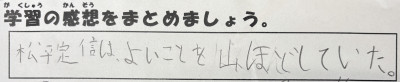 学習の感想をまとめましょう。
松平定信は、よいことを山ほどしていた。